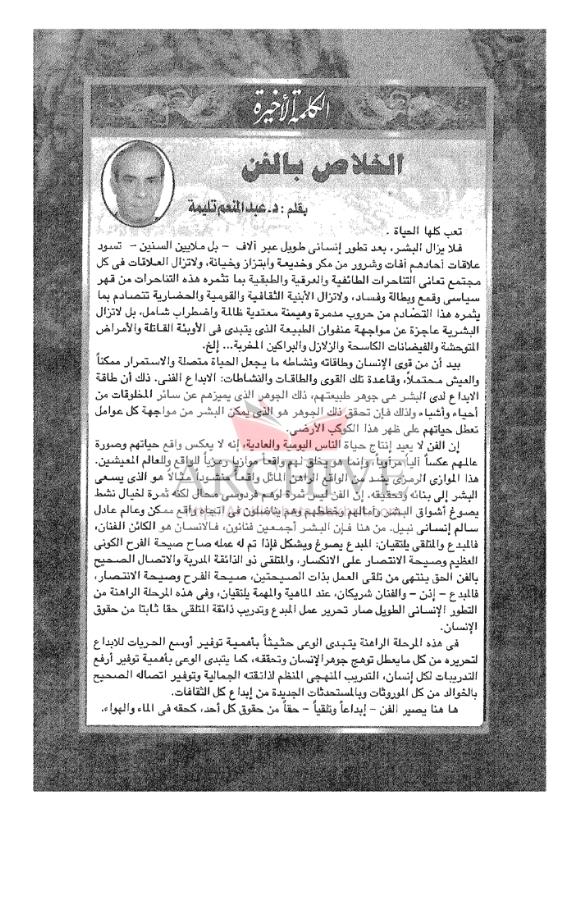 الكلمة الأخيرة
الخلاص بالفن
بقلم : د. عبدالمنعم تليمة
تعب كلها الحياة .
فلا يزال البشر، بعد تطور إنسانى طويل عبر آلاف – بل ملايين السنين – تسود
علاقات آحادهم آفات وشرور من مكر وخديعة وابتزاز وخيانة، ولاتزال العلاقات فى كل
مجتمع تعانى التناحرات الطائفية والعرقية والطبقية بما تثمره هذه التناحرات من قهر
سياسى وقمع وبطالة وفساد، ولاتزال الأبنية الثقافية والقومية والحضارية تتصادم بما
يثمره هذا التصادم من حروب مدمرة وهيمنة معتدية ظالمة واضطراب شامل، بل لاتزال
البشرية عاجزة عن مواجهة عنفوان الطبيعة الذى يتبدى فى الأوبئة القاتلة والأمراض
المتوحشة والفيضانات الكاسحة والزلازل والبراكين المخربة... إلخ.
بيد أن من قوى الإنسان وطاقاته ونشاطه ما يجعل الحياة متصلة والاستمرار ممكناً
والعيش محتملاً، وقاعدة تلك القوى والطاقات والنشاطات: الابداع الفنى. ذلك أن طاقة
الابداع لدى البشر هى جوهر طبيعتهم، ذلك الجوهر الذى يميزهم عن سائر المخلوقات من
أحياء وأشياء ولذلك فإن تحقق ذلك الجوهر هو الذى يمكن البشر من مواجهة كل عوامل
تعطل حياتهم على ظهر هذا الكوكب الأرضى.
إن الفن لا يعيد إنتاج حياة الناس اليومية والعادية، إنه لا يعكس واقع حياتهم وصورة
عالمهم عكساً آلياً مرآوياً، وإنما هو يخلق لهم واقعاً موازياً رمزياً للواقع وللعالم المعيشين.
هذا الموازى الرمزى يتخذ من الواقع الراهن الماثل واقعاً منشوداً مثالاً هو الذى يسعى
البشر إلى بنائه وتحقيقه. إن الفن ليس ثمرة لوهم فردوسى محال لكنه ثمرة لخيال نشط
يصوغ أشواق البشر وآمالهم وخططهم وهم يناضلون فى اتجاه واقع ممكن وعالم عادل
سالم إنسانى نبيل. من هنا فإن البشر أجمعين فنانون، فالانسان هو الكائن الفنان،
فالمبدع والمتلقى يلتقيان: المبدع يصوغ ويشكل فإذا تم له عمله صاح صيحة الفرح الكونى
العظيم وصيحة الانتصار على الانكسار، والمتلقى ذو الذائقة المدربة والاتصال الصحيح
بالفن الحق ينتهى من تلقى العمل بذات الصيحتين، صيحة الفرح وصيحة الانتصار،
فالمبدع – إذن – والفنان شريكان، عند الماهية والمهمة يلتقيان، وفى هذه المرحلة الراهنة من
التطور الإنسانى الطويل صار تحرير عمل المبدع وتدريب ذائقة المتلقى حقا ثابتا من حقوق
الإنسان.
فى هذه المرحلة الراهنة يتبدى الوعى حثيثاً بأهمية توفير أوسع الحريات للابداع
لتحريره من كل مايعطل توهج جوهر الإنسان وتحققه، كما يتبدى الوعى بأهمية توفير أرفع
التدريبات لكل إنسان، التدريب المنهجى المنظم لذائقته الجمالية وتوفير اتصاله الصحيح
بالخوالد من كل الموروثات وبالمستحدثات الجديدة من إبداع كل الثقافات.
ها هنا يصير الفن – إبداعاً وتلقياً – حقاً من حقوق كل أحد، كحقه فى الماء والهواء.
ARCHIVE